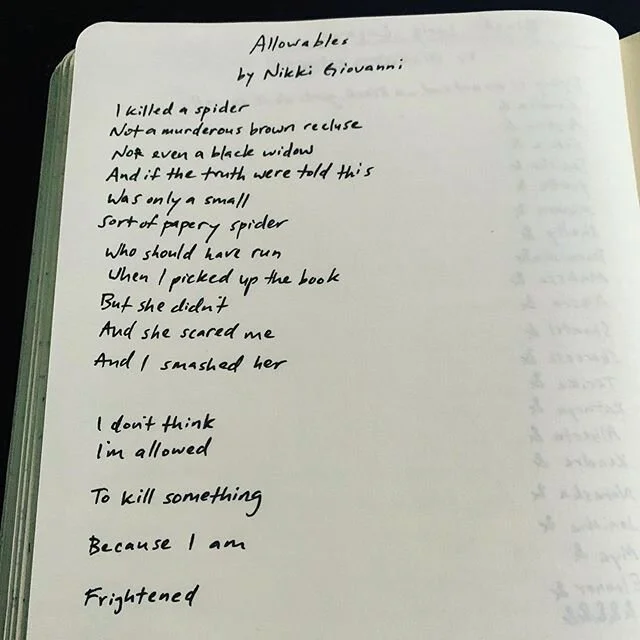 Allowables
by Nikki Giovanni
I killed a spider
Not a murderous brown recluse
Nor even a black widow
And if the truth were told this
Was only a small
Sort of papery spider
Who should have run
When I picked up the book
But she didn't
And she scared me
And I smashed her
I don't think
I'm allowed
To kill something
Because I am
Frightened